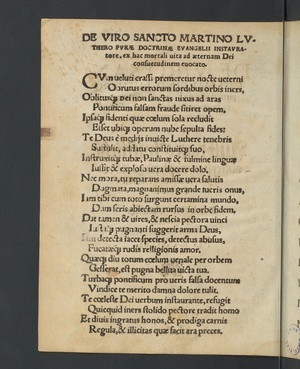 DE VIRO SANCTO MARTINO LV-
THERO PVRÆ DOCTRINÆ EVANGELII INSTAVRA-
tore, ex hac mortali uita ad æternam Dei
consuetudinem euocato.
CVm ueluti crassi premeretur nocte ueterni
Obrutus errorum sordibus orbis iners,
Oblitusq; dei non sanctas nixus ad aras
Pontificum falsam fraude sitiret opem,
Ipsaq; fidenti quæ cœlum sola recludit
Esset ubiq; operum nube sepulta fides:
Te Deus è medijs inuicte Luthere tenebris
Sustulit, ad lucu constituitq; suo,
Instruxitq; tubæ, Paulinæ & fulmine linguæ
Iussit & explosa uera docere dolo,
Nec mora, tu reparans amissæ uera salutis
Dogmata, magnanimus grande tueris onus,
Iam tibi cum toto surgunt certamina mundo,
Dum seris abiectam rursus in orbe fidem,
Dat tamen & uires, & nescia pectora uinci
Iusta q; pugnanti suggerit arma Deus,
Iam detecta iacet species, detectus abusus,
Fucataq; rudis religionis amor,
Quæq; diu totum cœlum uenale per orbem
Gesserat, est pugna bellua uicta tua.
Turbaq; pontificum pro ueris falsa docentum
Vindice te merito damna dolore tulit.
Te cœleste Dei uerbum instaurante, refugit
Quicquid iners stolido pectore tradit homo
Et diuis ingratus honos, & prodiga carnis
Regula, & illicitas quæ facit ara preces.